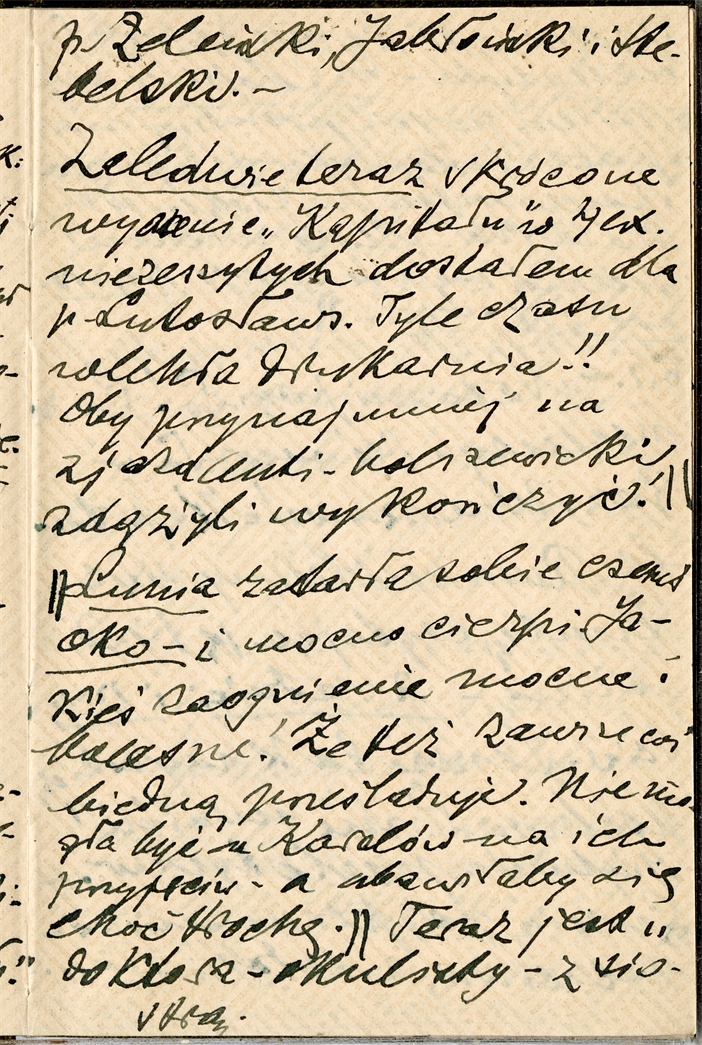 p. Zeleński, Jabłoński i Ste-
belski. –
Zaledwie teraz skrócone
wydanie „Kapitału" w 4 ex.
niezeszytych dostałem dla
p. Lutosławs. Tyle czasu
zwlekła drukarnia!!
Oby przynajmniej na
zjazd anti-bolszewicki
zdążyli wykończyć! ||
|| Lunia zatarła sobie czemś
oko – i mocno cierpi. Ja-
kieś zaognienie mocne i
bolesne! Że też zawsze coś
biedną prześladuje. Nie mo-
gła być u Karolów na ich
przyjęciu – a ubawiłaby się
choć trochę. || Teraz jest u
doktora – okulisty – z sio-
strą.